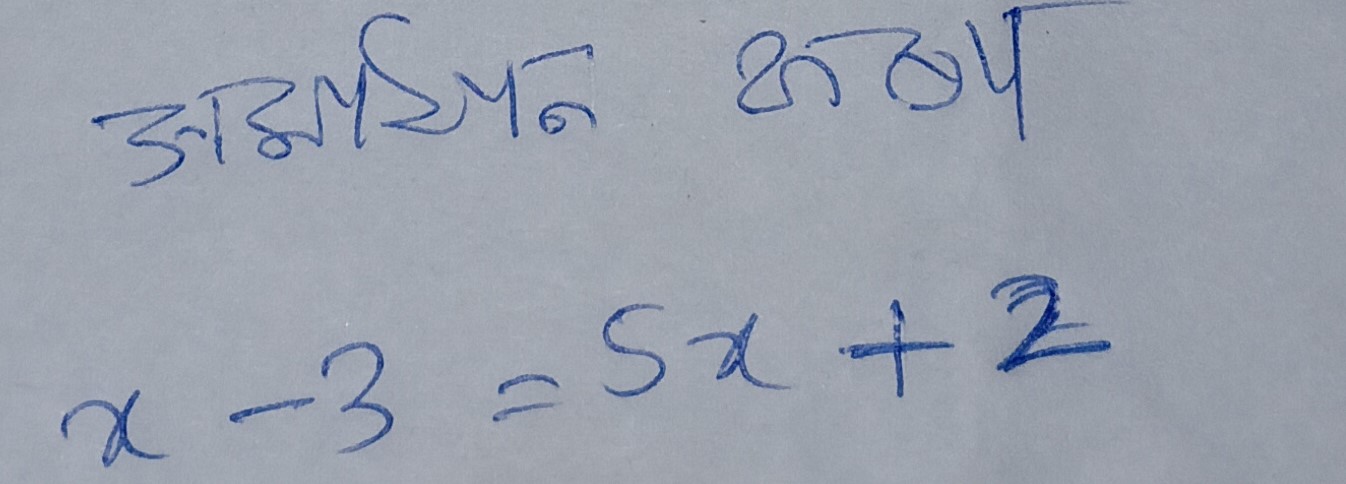 সমাধান কর
x - 3 = 5x + 2